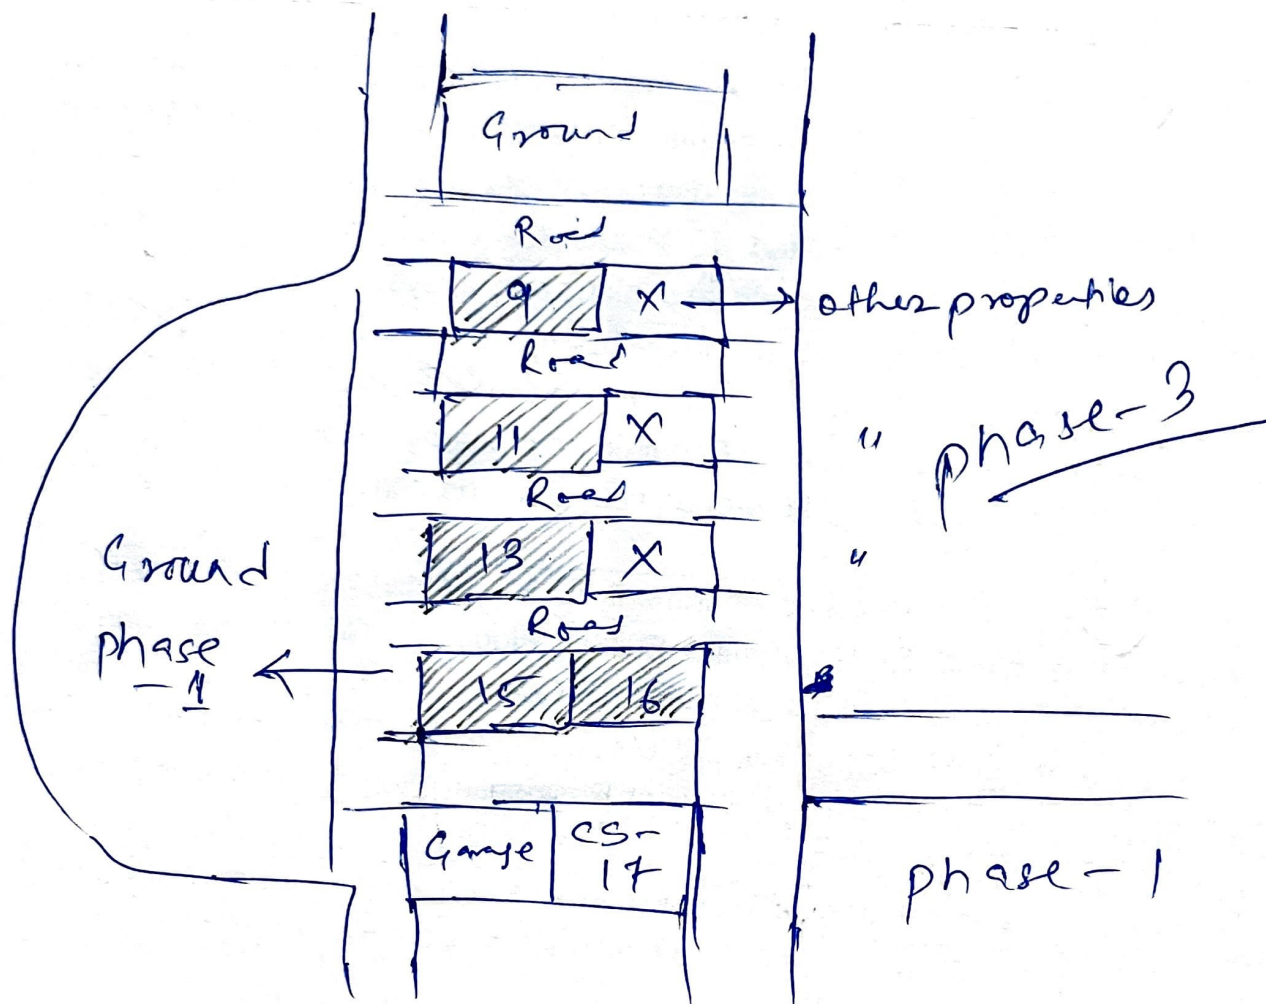 Ground
Road
9 X → other properties
Road
11 X "
phase-3
Road
13 X "
Ground
phase
-1
Road
15 16
Garage CS-
17
phase-1